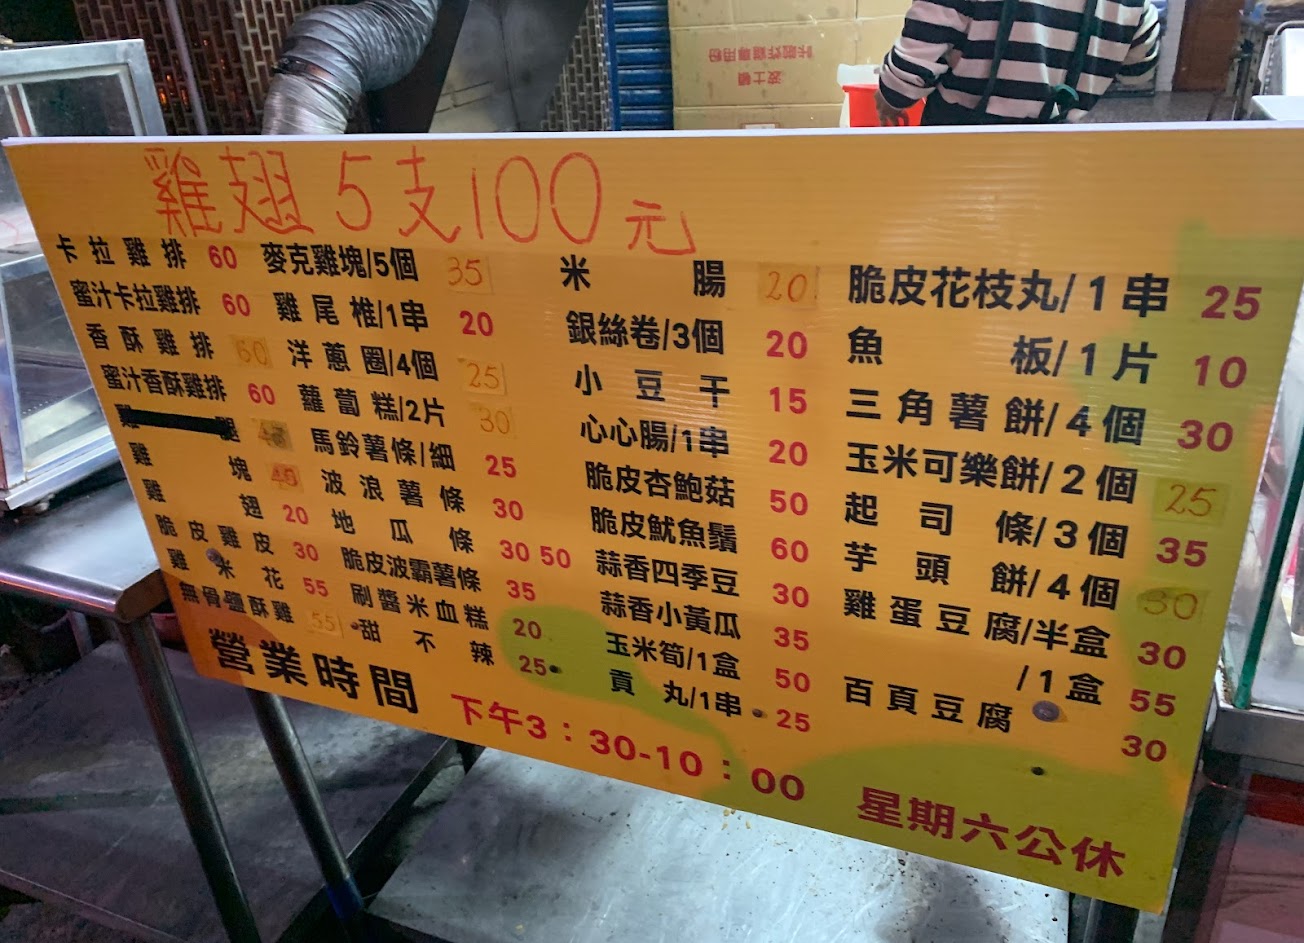 波士頓
卡啦炸雞專用粉
雞翅5支100元
卡拉雞排 60
蜜汁卡拉雞排 60
香酥雞排 60
蜜汁香酥雞排 60
雞塊 40
雞翅 20
脆皮雞皮 30
雞米花 55
無骨鹽酥雞 55
麥克雞塊/5個 35
雞尾椎/1串 20
洋蔥圈/4個 25
蘿蔔糕/2片 30
馬鈴薯條/細 25
波浪薯條 30
地瓜條 30 50
脆皮波霸薯條 35
刷醬米血糕 20
甜不辣 25
米腸 20
銀絲卷/3個 20
小豆干 15
心心腸/1串 20
脆皮杏鮑菇 50
脆皮魷魚鬚 60
蒜香四季豆 30
蒜香小黃瓜 35
玉米筍/1盒 50
貢丸/1串 25
脆皮花枝丸/1串 25
魚板/1片 10
三角薯餅/4個 30
玉米可樂餅/2個 25
起司條/3個 35
芋頭餅/4個 30
雞蛋豆腐/半盒 30
/1盒 55
百頁豆腐 30
營業時間 下午3：30-10：00 星期六公休